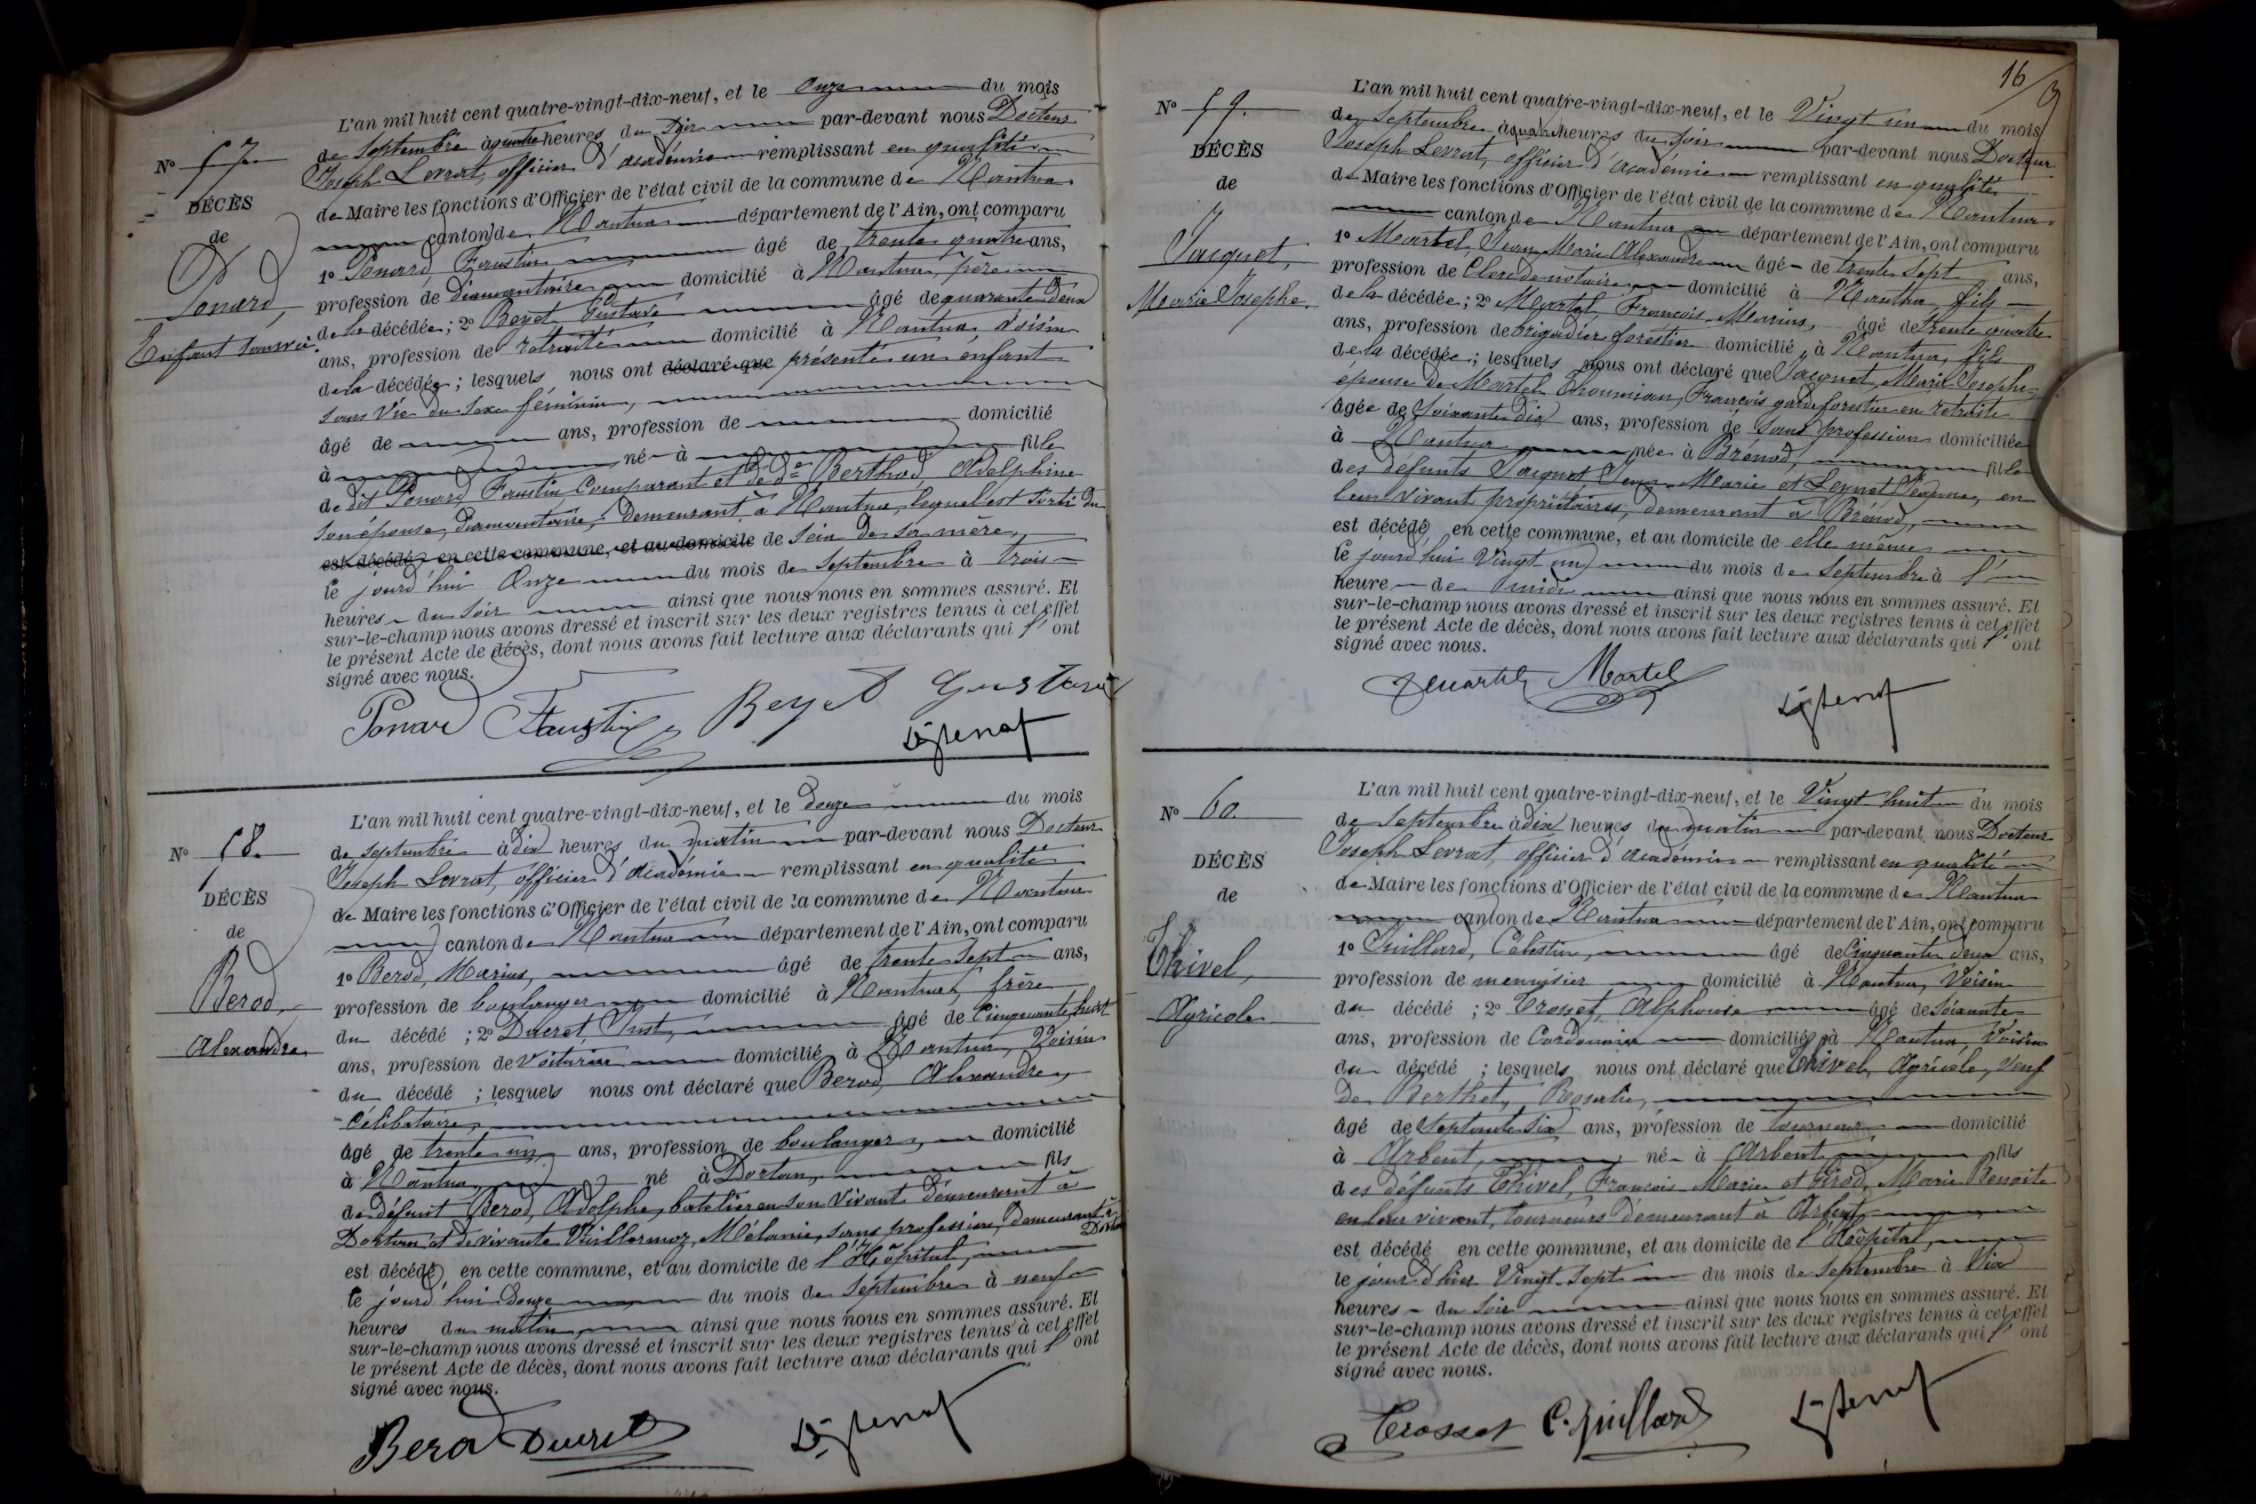 L'an mil huit cent quatre-vingt-dix-neuf, et le Onze du mois
de Septembre à quatre heures du Soir par-devant nous Docteur
Joseph Levrat, officier d'académie remplissant en qualité
de Maire les fonctions d'Officier de l'état civil de la commune de Nantua
canton de Nantua département de l'Ain, ont comparu
1º Ponard, Faustin âgé de trente quatre ans,
profession de diamantaire domicilié à Nantua, père
de la décédée; 2º Beyet Gustave âgé de quarante deux
ans, profession de retraité domicilié à Nantua voisin
de la décédée; lesquels nous ont déclaré que présenté un enfant
sans vie du sexe féminin,
âgé de ans, profession de domicilié
à né à fille
de dit Ponard Faustin, Comparant et de De Berthod, Adelphine
son épouse, diamantaire, demeurant à Nantua, lequel est sorti du
est décédé en cette commune, et au domicile de sein de sa mère,
le jourd'hui Onze du mois de Septembre à trois
heures du soir ainsi que nous nous en sommes assuré. Et
sur-le-champ nous avons dressé et inscrit sur les deux registres tenus à cet effet
le présent Acte de décès, dont nous avons fait lecture aux déclarants qui l' ont
signé avec nous.
Nº 57
DÉCÈS
de
Ponard,
Enfant sans vie
Ponard Faustin Beyet Gustave
L'an mil huit cent quatre-vingt-dix-neuf, et le douze du mois
de septembre à dix heures du matin par-devant nous Docteur
Joseph Levrat, officier d'académie remplissant en qualité
de Maire les fonctions d'Officier de l'état civil de la commune de Nantua
canton de Nantua département de l'Ain, ont comparu
1º Berod, Marius, âgé de trente sept ans,
profession de boulanger domicilié à Nantua, frère
du décédé; 2º Ducret, Just, âgé de Cinquante huit
ans, profession de voiturier domicilié à Nantua, Voisin
du décédé; lesquels nous ont déclaré que Berod, Alexandre,
célibataire,
âgé de trente un ans, profession de boulanger, domicilié
à Nantua, né à Dortan, fils
de défunt Berod, Adolphe, batelier en son vivant demeurant à
Dortan et de vivante Vuillermoz, Mélanie, sans profession, demeurant à Dortan
est décédé, en cette commune, et au domicile de l'Hôpital,
le jourd'hui Douze du mois de septembre à neuf
heures du matin, ainsi que nous nous en sommes assuré. Et
sur-le-champ nous avons dressé et inscrit sur les deux registres tenus à cet effet
le présent Acte de décès, dont nous avons fait lecture aux déclarants qui l' ont
signé avec nous.
Nº 58
DÉCÈS
de
Berod,
Alexandre
Berod Ducret
16
L'an mil huit cent quatre-vingt-dix-neuf, et le Vingt un du mois
de Septembre à quatre heures du soir par-devant nous Docteur
Joseph Levrat, officier d'académie remplissant en qualité
de Maire les fonctions d'Officier de l'état civil de la commune de Nantua
canton de Nantua département de l'Ain, ont comparu
1º Martel, Jean Marie Alexandre âgé de trente sept ans,
profession de Clerc de notaire domicilié à Nantua fils
de la décédée; 2º Martel, François Marius, âgé de trente quatre
ans, profession de brigadier forestier domicilié à Nantua, fils
de la décédée; lesquels nous ont déclaré que Jacquet, Marie Josephe
épouse de Martel François garde forestier en retraite
âgée de Soixante dix ans, profession de sans profession domiciliée
à Nantua née à Brénod, fille
des défunts Jacquet, Jean Marie et Jeanne, en
leur vivant propriétaires, demeurant à Brénod,
est décédé, en cette commune, et au domicile de elle même
le jourd'hui Vingt un du mois de Septembre à l'
heure de midi ainsi que nous nous en sommes assuré. Et
sur-le-champ nous avons dressé et inscrit sur les deux registres tenus à cet effet
le présent Acte de décès, dont nous avons fait lecture aux déclarants qui l' ont
signé avec nous.
Nº 59.
DÉCÈS
de
Jacquet,
Marie Josephe
Martel Martel
L'an mil huit cent quatre-vingt-dix-neuf, et le Vingt huit du mois
de Septembre à dix heures du matin par-devant nous Docteur
Joseph Levrat, officier d'académie remplissant en qualité
de Maire les fonctions d'Officier de l'état civil de la commune de Nantua
canton de Nantua département de l'Ain, ont comparu
1º Juillard, Célestin, âgé de Cinquante deux ans,
profession de menuisier domicilié à Nantua, Voisin
du décédé; 2º Crosset, Alphonse âgé de Soixante
ans, profession de Cordonnier domicilié à Nantua, Voisin
du décédé; lesquels nous ont déclaré que Thivel, Agricole, veuf
de Berthet, Rosalie,
âgé de septante six ans, profession de tourneur domicilié
à Arbent, né à Arbent fils
des défunts Thivel, François Marie et Girod, Marie Benoite
en leur vivant, tourneurs demeurant à Arbent
est décédé en cette commune, et au domicile de l'Hôpital,
le jourd'hier Vingt sept du mois de Septembre à dix
heures du soir ainsi que nous nous en sommes assuré. Et
sur-le-champ nous avons dressé et inscrit sur les deux registres tenus à cet effet
le présent Acte de décès, dont nous avons fait lecture aux déclarants qui l' ont
signé avec nous.
Nº 60.
DÉCÈS
de
Thivel,
Agricole
Crosset C. Juillard